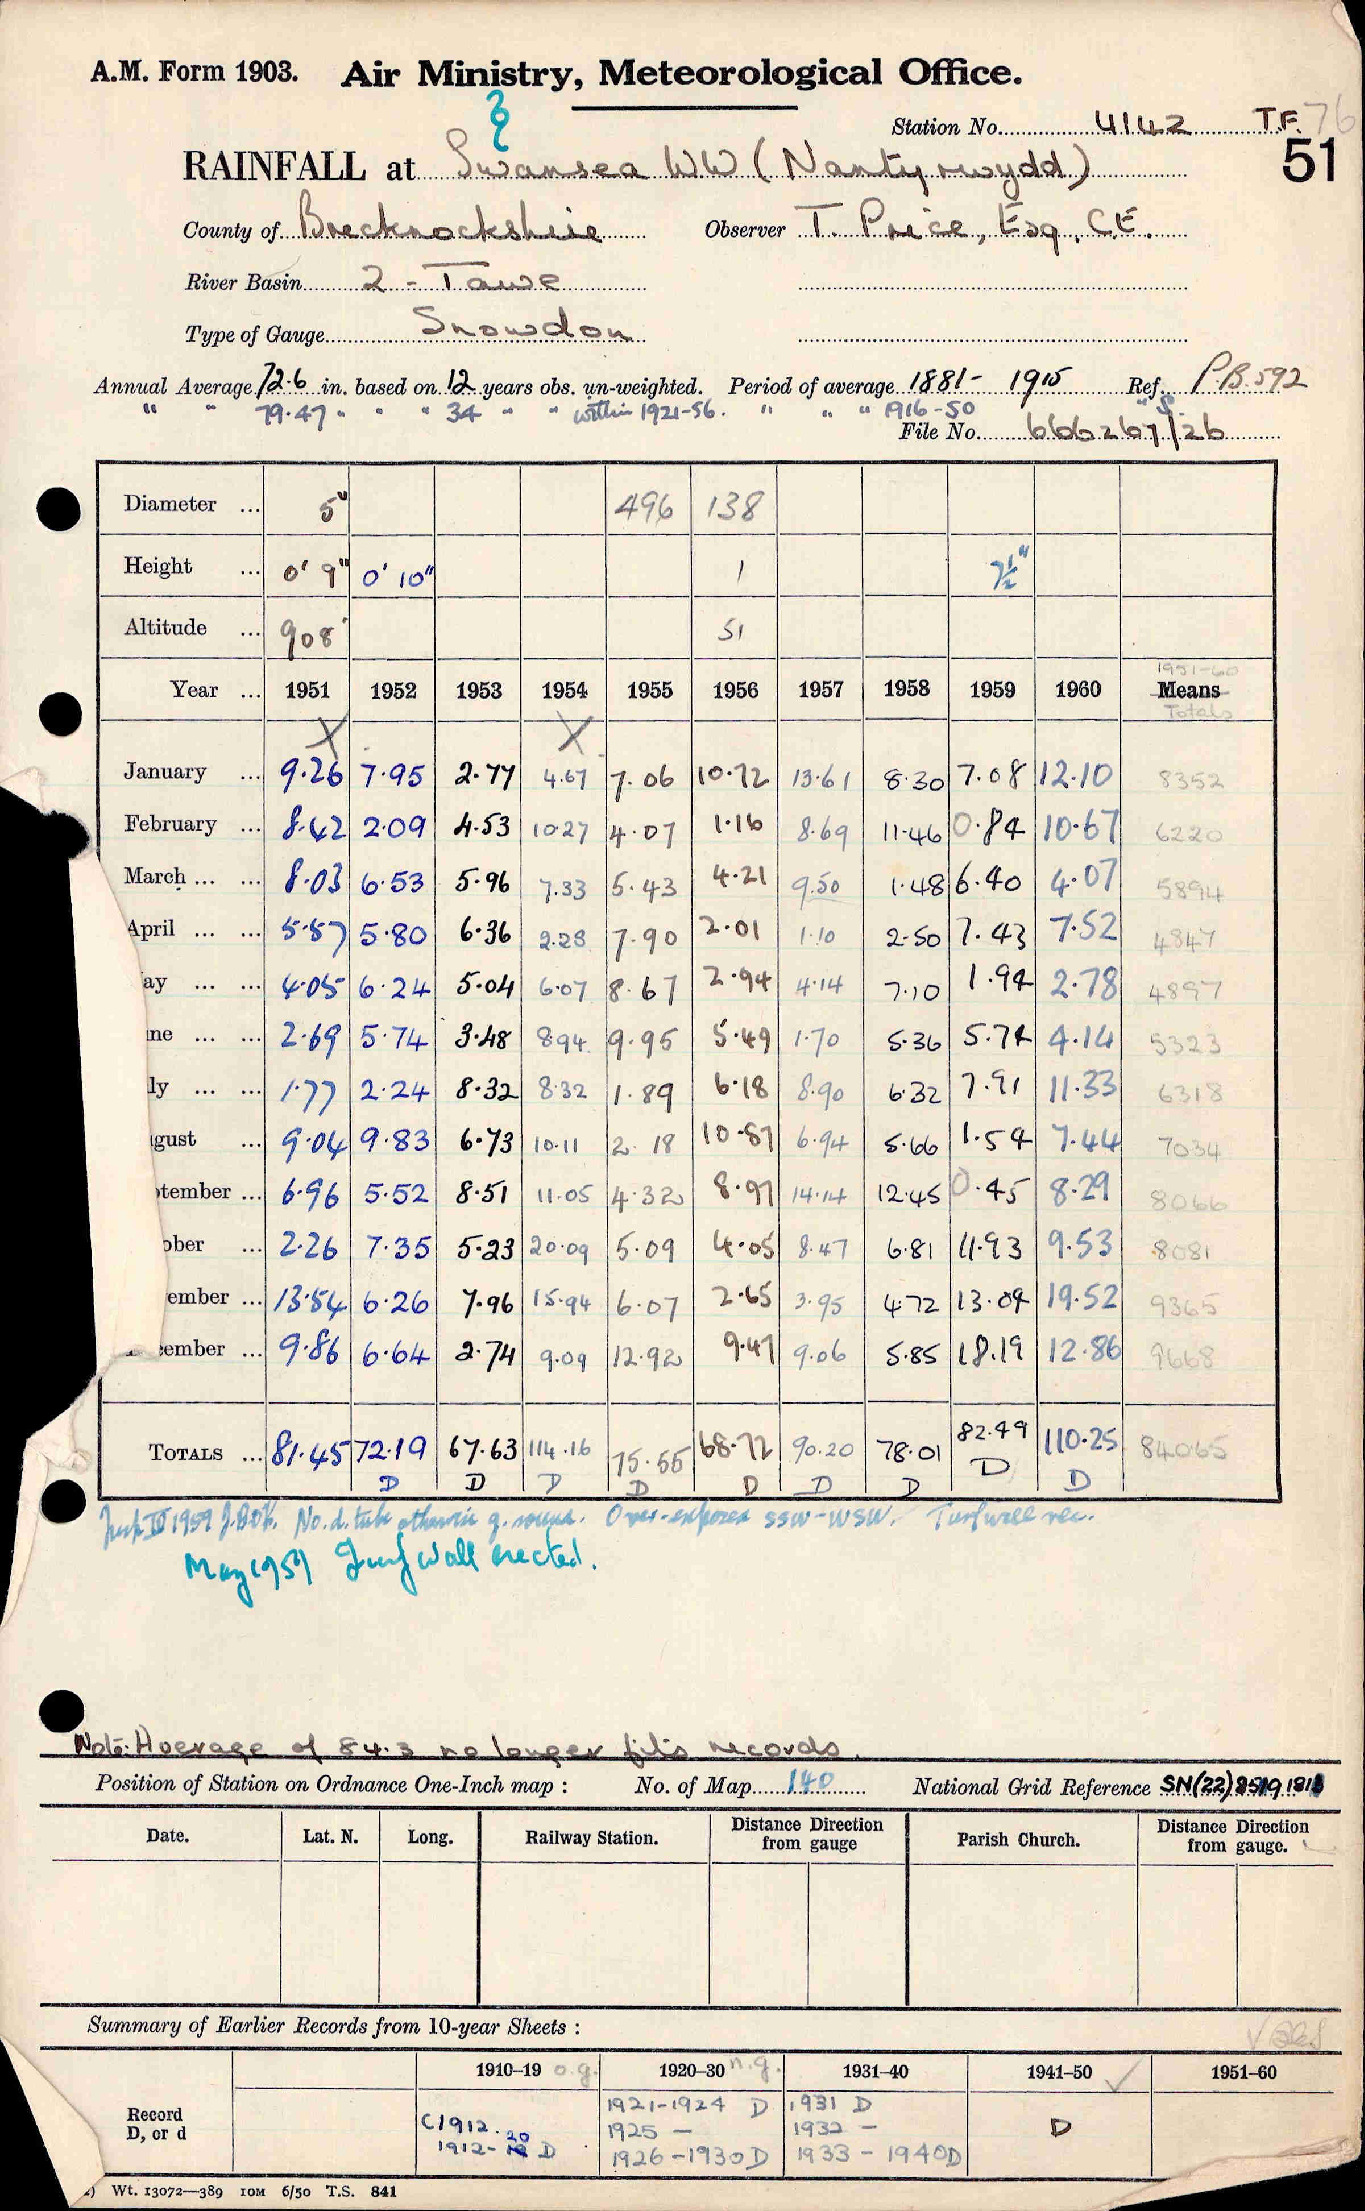 A.M. Form 1903. Air Ministry, Meteorological Office.
Station No. 4142 T.F. 76
51
RAINFALL at Swansea WW (Nantyrwydd)
County of Brecknockshire Observer T. Price, Esq, C.E.
River Basin 2 - Tawe
Type of Gauge Snowdon
Annual Average 72.6 in. based on 12 years obs. un-weighted. Period of average 1881 - 1915 Ref. P.B.592
" " 79.47 " " " 34 " " within 1921-56. " " " 1916-50 " S.
File No. 666267/26
Diameter ... 5" 496 138
Height ... 0' 9" 0' 10" 1 7½"
Altitude ... 908' 51
1951-60
Year ... 1951 1952 1953 1954 1955 1956 1957 1958 1959 1960 Means
Totals
X X
January ... 9.26 7.95 2.77 4.67 7.06 10.72 13.61 8.30 7.08 12.10 8352
February ... 8.42 2.09 4.53 10.27 4.07 1.16 8.69 11.46 0.84 10.67 6220
March ... ... 8.03 6.53 5.96 7.33 5.43 4.21 9.50 1.48 6.40 4.07 5894
April ... ... 5.57 5.80 6.36 2.28 7.90 2.01 1.10 2.50 7.43 7.52 4847
ay ... ... 4.05 6.24 5.04 6.07 8.67 2.94 4.14 7.10 1.94 2.78 4897
ne ... ... 2.69 5.74 3.48 8.94 9.95 5.49 1.70 5.36 5.74 4.14 5323
ly ... ... 1.77 2.24 8.32 8.32 1.89 6.18 8.90 6.32 7.91 11.33 6318
gust ... 9.04 9.83 6.73 10.11 2.18 10.87 6.94 5.66 1.54 7.44 7034
tember ... 6.96 5.52 8.51 11.05 4.32 8.97 14.14 12.45 0.45 8.29 8066
ober ... 2.26 7.35 5.23 20.09 5.09 4.05 8.47 6.81 11.93 9.53 8081
ember ... 13.54 6.26 7.96 15.94 6.07 2.65 3.95 4.72 13.04 19.52 9365
cember ... 9.86 6.64 2.74 9.09 12.92 9.47 9.06 5.85 18.19 12.86 9668
TOTALS ... 81.45 72.19 67.63 114.16 75.55 68.72 90.20 78.01 82.49 110.25 84065
D D D D D D D D D
1959 No. d. tube otherwise g. sound. Over-exposed SSW-WSW. Turf wall rec.
May 1959 Turf wall erected.
Note: Average of 84.3 no longer fits records.
Position of Station on Ordnance One-Inch map : No. of Map 140 National Grid Reference SN(22)
Date. Lat. N. Long. Railway Station. Distance Direction from gauge Parish Church. Distance Direction from gauge.
Summary of Earlier Records from 10-year Sheets :
1910–19 o.g. 1920–30 n.g. 1931–40 1941–50 ✓ 1951–60
Record D, or d
C1912. 1921-1924 D 1931 D
1912-20 D 1925 - 1932 - D
1926-1930 D 1933 - 1940 D
Wt. 13072—389 10M 6/50 T.S. 841